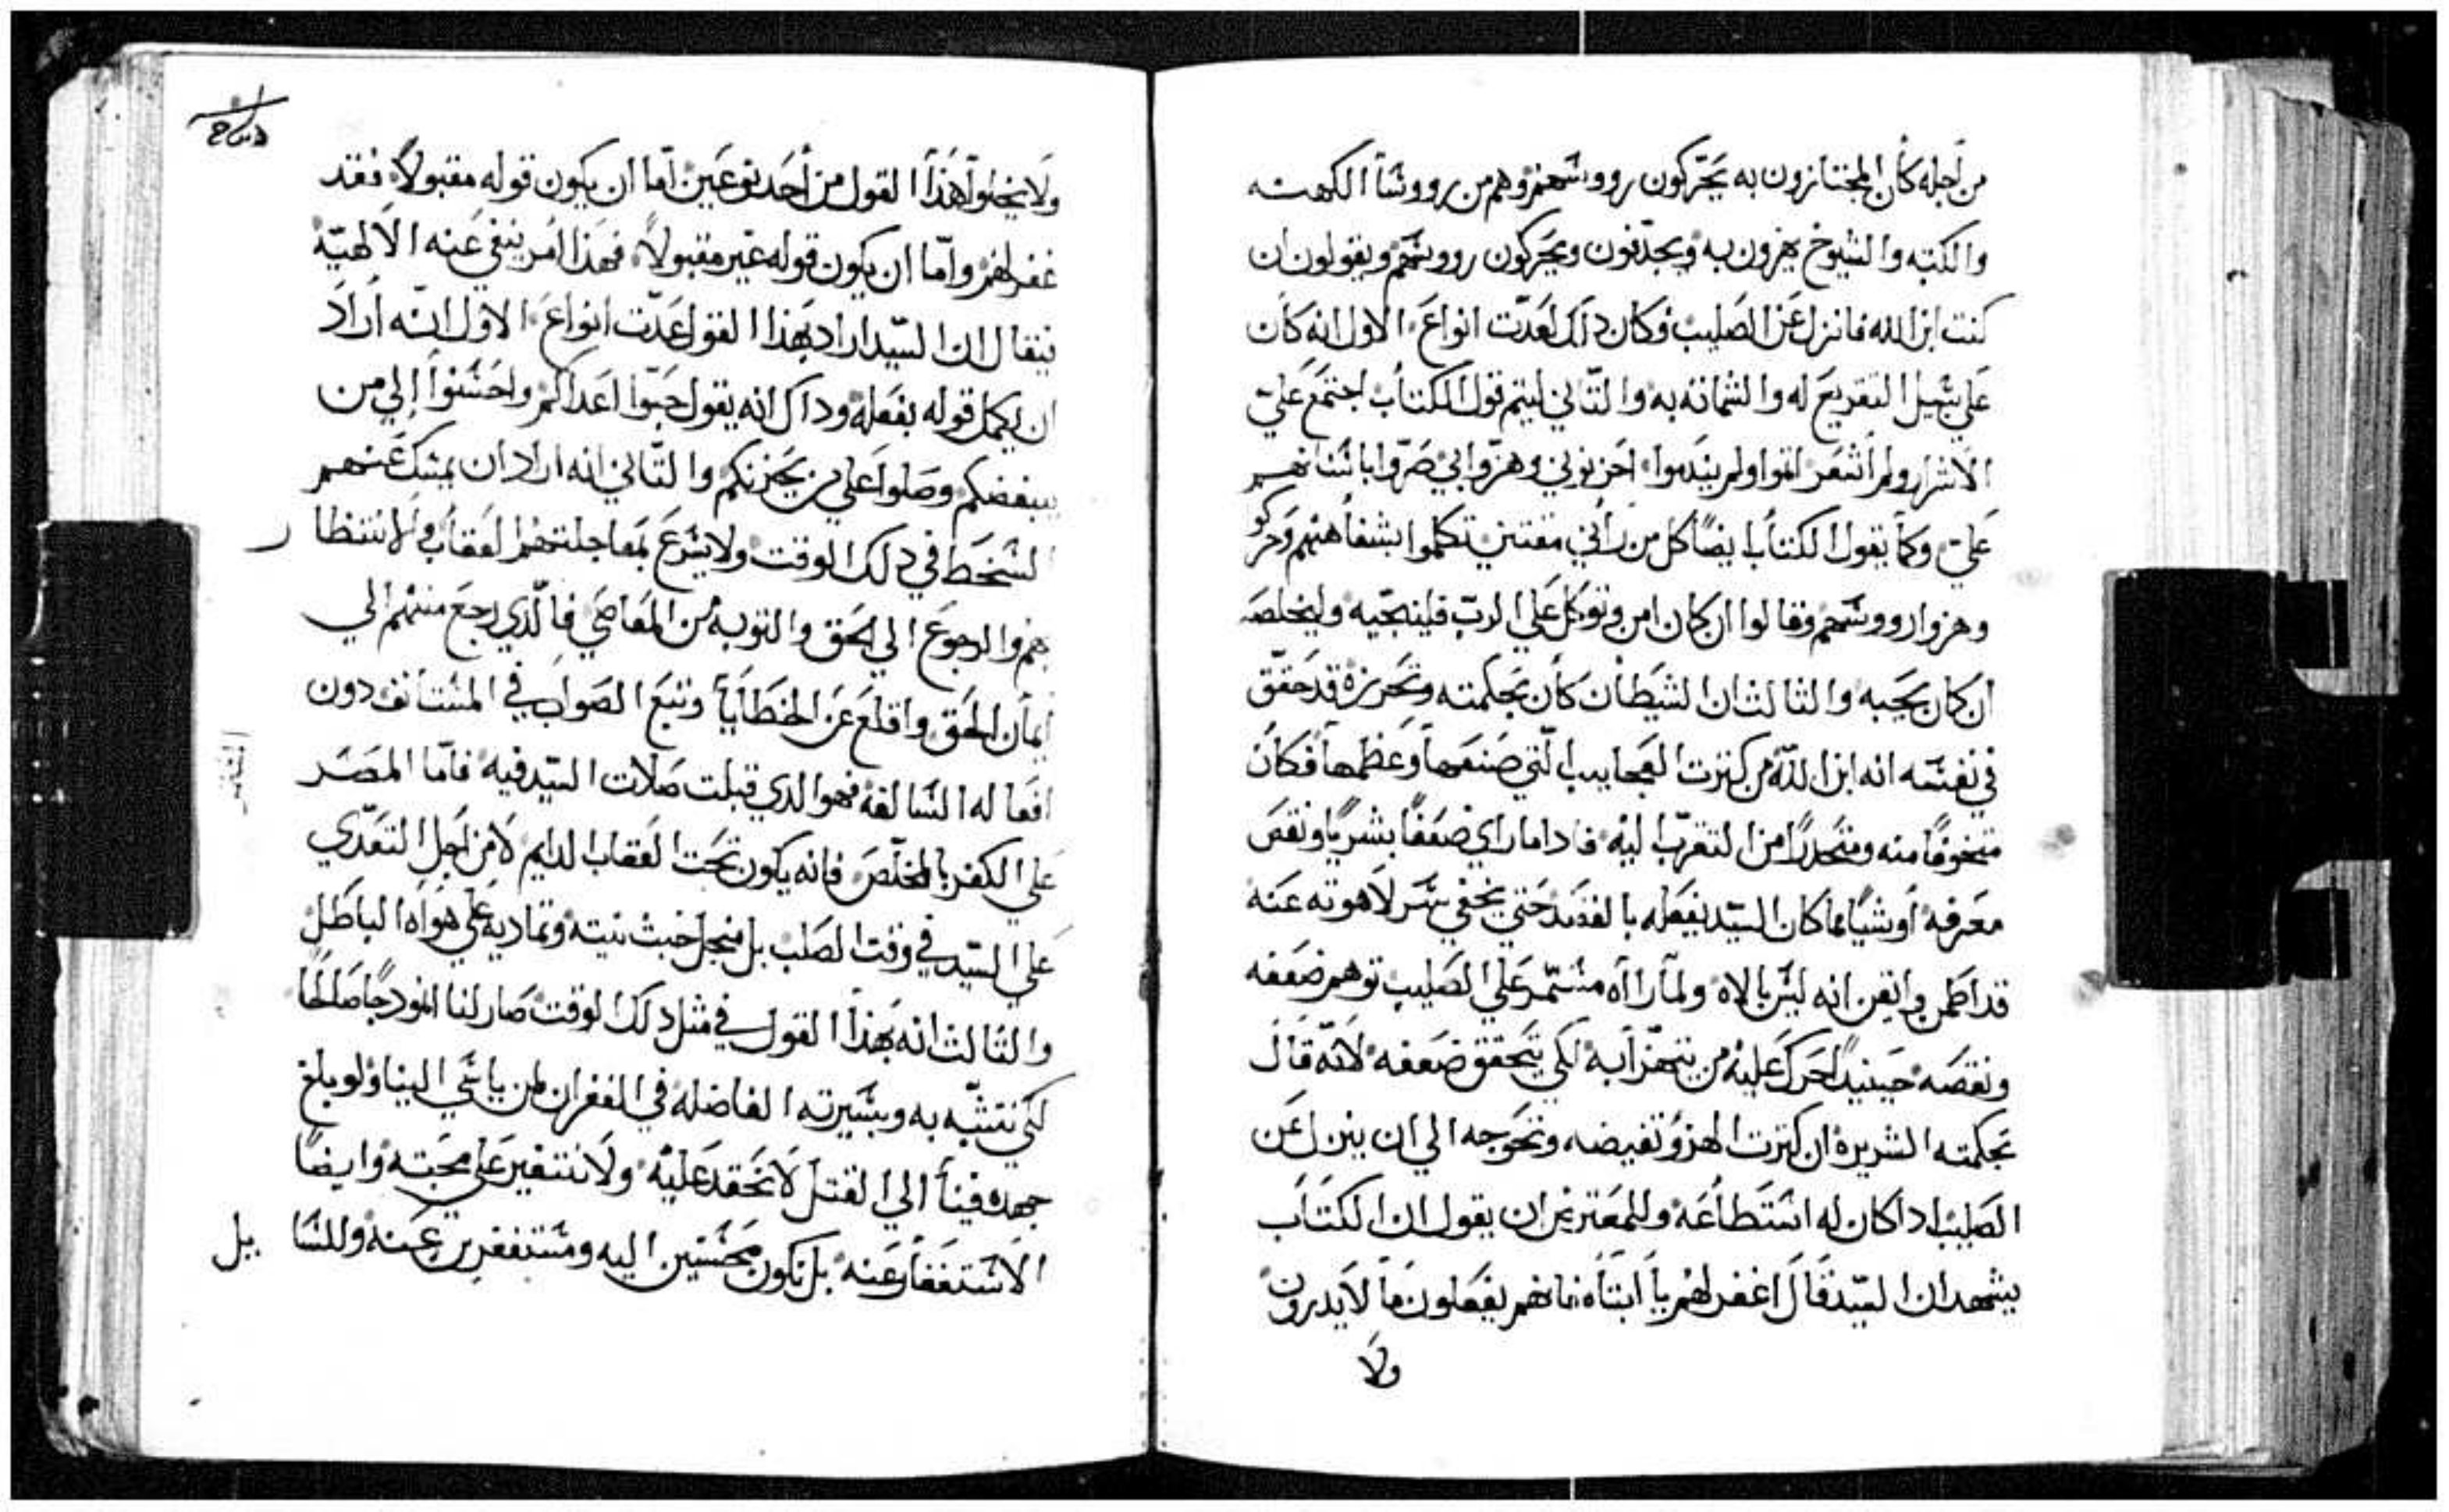 من اجله كان المجتازون به يحركون رووسهم وهم من رووسا الكهنه
والكتبه والشيوخ يهزون به ويجدفون ويحركون رووسهم ويقولون ان
كنت ابن الله فانزل عن الصليب وكان ذلك لعدت انواع الاول انه كان
علي سبيل التقريع له والشماته به والتاني ليتم قول الكتاب اجتمع علي
الاشرار ولم اشعر اتموا ولم يندموا احزنوني وهزوا بي صروا باسنانهم
علي وكما يقول الكتاب ايضًا كل من راني مقتني تكلموا بشفاههم وحركو
وهزوا رووسهم وقالوا ان كان امن وتوكل علي الرب فلينجيه وليخلصه
ان كان يحبه والثالث ان الشيطان كان بحكمته وتحريزه قد حقق
في نفسه انه ابن الله من كترت العجايب التي صنعها وعظمها فكان
متخوفًا منه ومتحدرًا من التقرب اليه فاداما راي ضعفًا بشريًا ونقص
معرفه او شيًا مما كان السيد يفعله بالقصد حتي يخفي سر لاهوته عنه
قد اطمن وايقن انه ليس بالاه ولما راآه مسمر علي الصليب توهم ضعفه
ونقصه حينيدٍ حرك عليه من يتهزا به لكي يتحقق ضعفه لانه قال
بحكمته الشريره ان كترت الهزو تغيضه وتحوجه الي ان ينزل عن
الصليب ادا كان له استطاعه وللمعترض ان يقول ان الكتاب
يشهد ان السيد قال اغفر لهم يا ابتاه فانهم يفعلون ما لا يدرون
ولا
ولا يخلوا هذا القول من احد نوعين اما ان يكون قوله مقبولاً فقد
غفر لهم واما ان يكون قوله غير مقبولاً فهذا امر ينفي عنه الالهيّة
فيقال ان السيد اراد بهذا القول عدّت انواع الاول انّه اراد
ان يكمل قوله بفعله وداك انه يقول حبّوا اعداكم واحسنوا الي من
يبغضكم وصلوا علي من يحزنكم والتاني انه اراد ان يمسك عنهم
السخط في دلك الوقت ولا يسرع بمعاجلتهم العقاب ولانتظا ر
هم والرجوع الي الحق والتوبه من المعاصي فالّدي رجع منهم الي
ايمان الحق واقلع عن الخطايا وتبع الصواب في المستانف دون
افعاله السالفه فهو الدي قبلت صلات السيّد فيه فامّا المصر
علي الكفر بالمخلص فانه يكون تحت العقاب الدايم لا من اجل التعدّي
علي السيّد في وقت الصلب بل من اجل خبث نيته وتماديه علي هواه الباطل
والتالت انه بهذا القول في مثل دلك الوقت صار لنا انمودجًا صالحًا
لكي نتشبّه به وبسيرته الفاضله في الغفران لمن ياسي الينا ولو بلغ
جهده فينا الي القتل لا نحقد عليه ولا نتغير علي محبته وايضًا
الاستغفار عنه بل نكون محسنين اليه ومستغفرين عنه وللسا يل